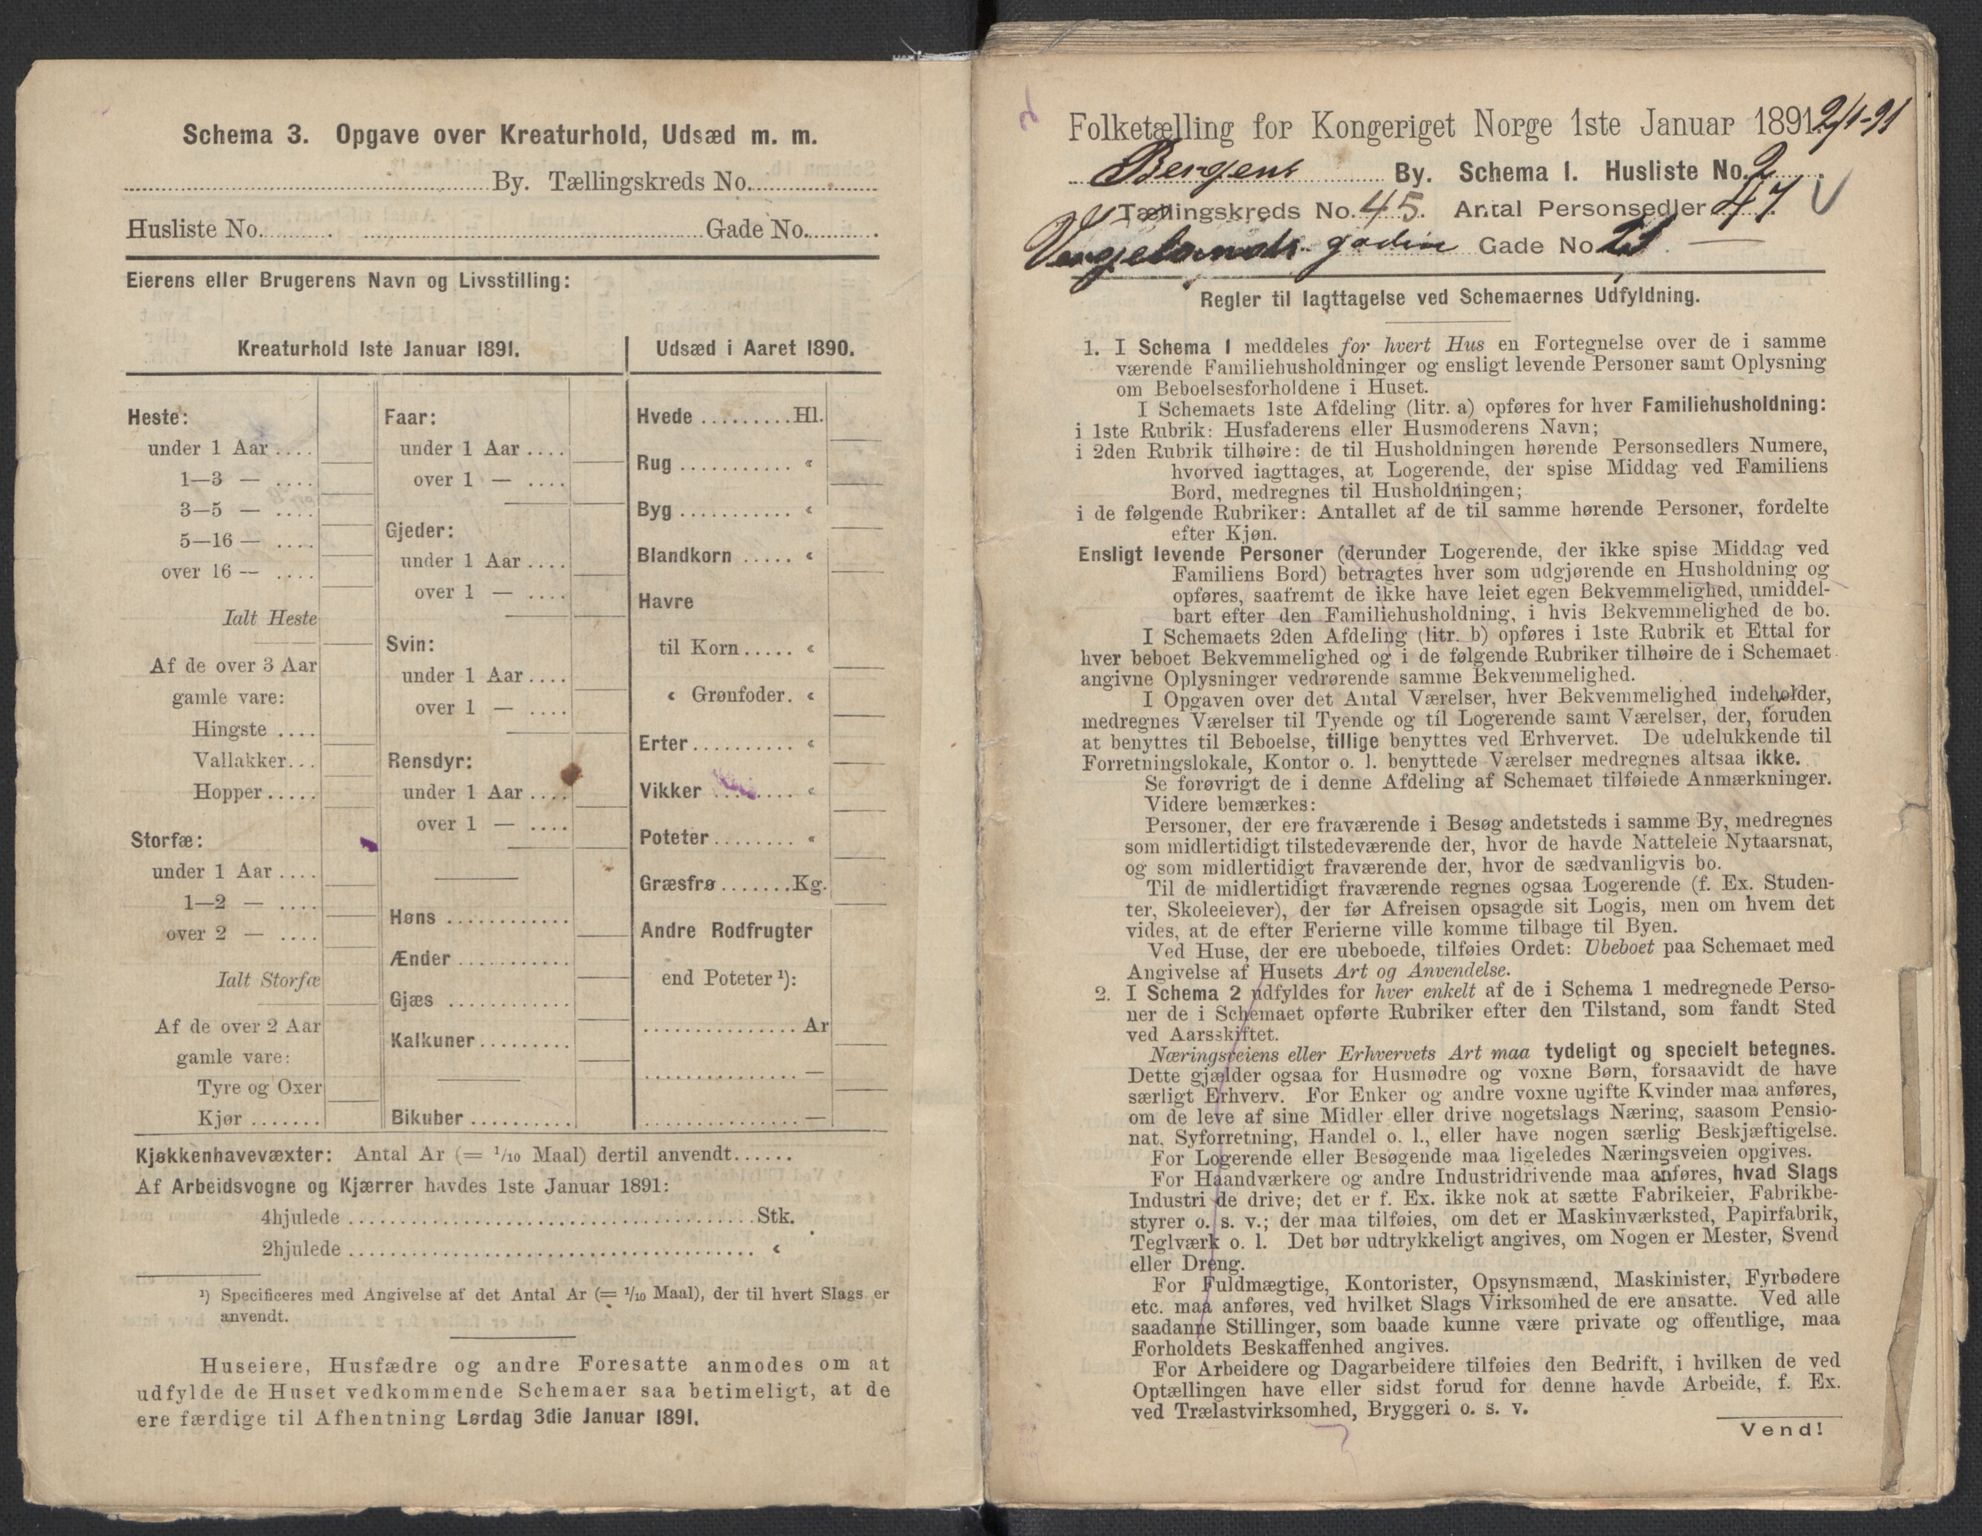 Schema 3. Opgave over Kreaturhold, Udsæd m. m.
By. Tællingskreds No.
Husliste No. Gade No.
Eierens eller Brugerens Navn og Livsstilling:
Kreaturhold 1ste Januar 1891.
Heste:
under 1 Aar
1—3 —
3—5 —
5—16 —
over 16 —
Ialt Heste
Af de over 3 Aar
gamle vare:
Hingste
Vallakker
Hopper
Storfæ:
under 1 Aar
1—2 —
over 2 —
Ialt Storfæ
Af de over 2 Aar
gamle vare:
Tyre og Oxer
Kjør
Faar:
under 1 Aar
over 1 —
Gjeder:
under 1 Aar
over 1 —
Svin:
under 1 Aar
over 1 —
Rensdyr:
under 1 Aar
over 1 —
Høns
Ænder
Gjæs
Kalkuner
Bikuber
Udsæd i Aaret 1890.
Hvede Hl.
Rug «
Byg «
Blandkorn «
Havre
til Korn «
« Grønfoder. «
Erter «
Vikker «
Poteter «
Græsfrø Kg.
Andre Rodfrugter
end Poteter ¹):
Ar
—
—
Kjøkkenhavevæxter: Antal Ar (= 1/10 Maal) dertil anvendt
Af Arbeidsvogne og Kjærrer havdes 1ste Januar 1891:
4hjulede Stk.
2hjulede «
¹) Specificeres med Angivelse af det Antal Ar (= 1/10 Maal), der til hvert Slags er
anvendt.
Huseiere, Husfædre og andre Foresatte anmodes om at
udfylde de Huset vedkommende Schemaer saa betimeligt, at de
ere færdige til Afhentning Lørdag 3die Januar 1891.
Folketælling for Kongeriget Norge 1ste Januar 1891. 2/1-91
Bergens By. Schema I. Husliste No. 2.
Tællingskreds No. 45. Antal Personsedler 47.
Gade No. 21
Regler til Iagttagelse ved Schemaernes Udfyldning.
1. I Schema 1 meddeles for hvert Hus en Fortegnelse over de i samme
værende Familiehusholdninger og ensligt levende Personer samt Oplysning
om Beboelsesforholdene i Huset.
I Schemaets 1ste Afdeling (litr. a) opføres for hver Familiehusholdning:
i 1ste Rubrik: Husfaderens eller Husmoderens Navn;
i 2den Rubrik tilhøire: de til Husholdningen hørende Personsedlers Numere,
hvorved iagttages, at Logerende, der spise Middag ved Familiens
Bord, medregnes til Husholdningen;
i de følgende Rubriker: Antallet af de til samme hørende Personer, fordelte
efter Kjøn.
Ensligt levende Personer (derunder Logerende, der ikke spise Middag ved
Familiens Bord) betragtes hver som udgjørende en Husholdning og
opføres, saafremt de ikke have leiet egen Bekvemmelighed, umiddel-
bart efter den Familiehusholdning, i hvis Bekvemmelighed de bo.
I Schemaets 2den Afdeling (litr. b) opføres i 1ste Rubrik et Ettal for
hver beboet Bekvemmelighed og i de følgende Rubriker tilhøire de i Schemaet
angivne Oplysninger vedrørende samme Bekvemmelighed.
I Opgaven over det Antal Værelser, hver Bekvemmelighed indeholder,
medregnes Værelser til Tyende og til Logerende samt Værelser, der, foruden
at benyttes til Beboelse, tillige benyttes ved Erhvervet. De udelukkende til
Forretningslokale, Kontor o. l. benyttede Værelser medregnes altsaa ikke.
Se forøvrigt de i denne Afdeling af Schemaet tilføiede Anmærkninger.
Videre bemærkes:
Personer, der ere fraværende i Besøg andetsteds i samme By, medregnes
som midlertidigt tilstedeværende der, hvor de havde Natteleie Nytaarsnat,
og som midlertidigt fraværende der, hvor de sædvanligvis bo.
Til de midlertidigt fraværende regnes ogsaa Logerende (f. Ex. Studen-
ter, Skoleelever), der før Afreisen opsagde sit Logis, men om hvem det
vides, at de efter Ferierne ville komme tilbage til Byen.
Ved Huse, der ere ubeboede, tilføies Ordet: Ubeboet paa Schemaet med
Angivelse af Husets Art og Anvendelse.
2. I Schema 2 udfyldes for hver enkelt af de i Schema 1 medregnede Perso-
ner de i Schemaet opførte Rubriker efter den Tilstand, som fandt Sted
ved Aarsskiftet.
Næringsveiens eller Erhvervets Art maa tydeligt og specielt betegnes.
Dette gjælder ogsaa for Husmødre og voxne Børn, forsaavidt de have
særligt Erhverv. For Enker og andre voxne ugifte Kvinder maa anføres,
om de leve af sine Midler eller drive nogetslags Næring, saasom Pensio-
nat, Syforretning, Handel o. l., eller have nogen særlig Beskjæftigelse.
For Logerende eller Besøgende maa ligeledes Næringsveien opgives.
For Haandværkere og andre Industridrivende maa anføres, hvad Slags
Industri de drive; det er f. Ex. ikke nok at sætte Fabrikeier, Fabrikbe-
styrer o. s. v.; der maa tilføies, om det er Maskinværksted, Papirfabrik,
Teglværk o. l. Det bør udtrykkeligt angives, om Nogen er Mester, Svend
eller Dreng.
For Fuldmægtige, Kontorister, Opsynsmænd, Maskinister, Fyrbødere
etc. maa anføres, ved hvilket Slags Virksomhed de ere ansatte. Ved alle
saadanne Stillinger, som baade kunne være private og offentlige, maa
Forholdets Beskaffenhed angives.
For Arbeidere og Dagarbeidere tilføies den Bedrift, i hvilken de ved
Optællingen have eller sidst forud for denne havde Arbeide, f. Ex.
ved Trælastvirksomhed, Bryggeri o. s. v.
Vend!